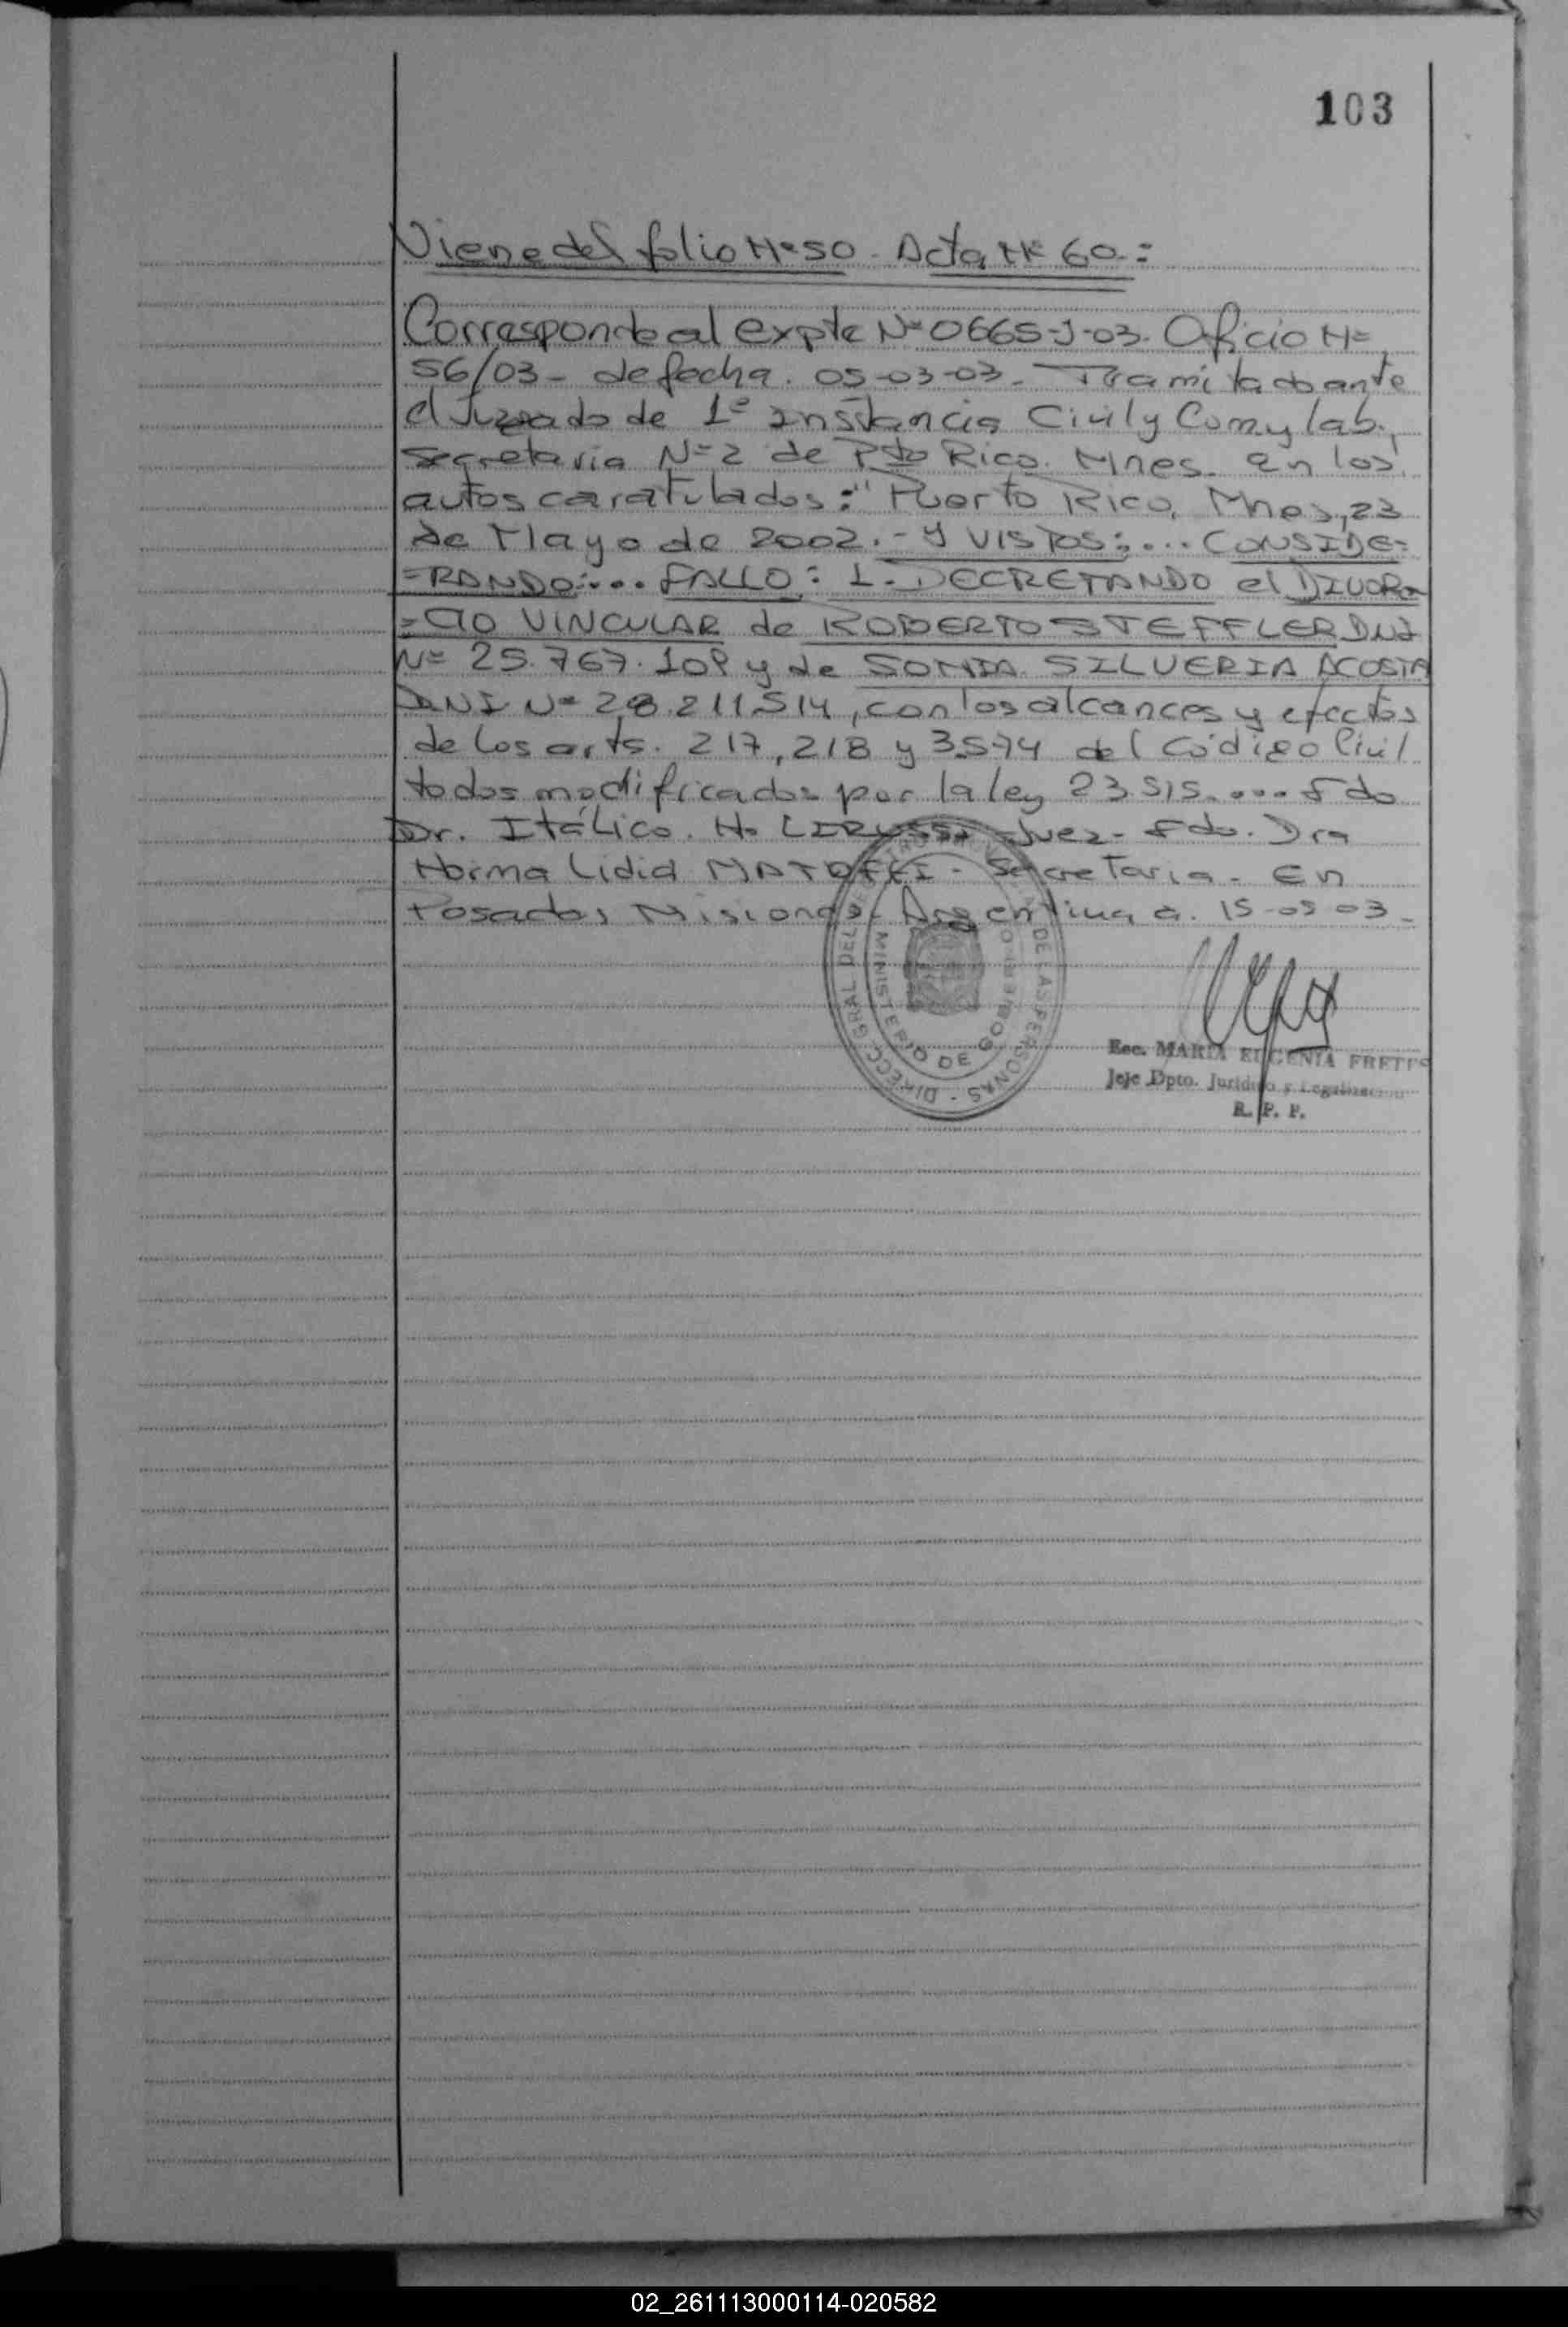 103
Viene del folio Nº 50 - Acta Nº 60.:
Corresponde al expte Nº 0665-J-03. Oficio Nº
56/03 - de fecha. 05-03-03. Tramitado ante
el Juzgado de 1º Instancia Civil y Com y lab.,
Secretaria Nº 2 de Pto Rico. Mnes. en los
autos caratulados: "Puerto Rico, Mnes, 23
de Mayo de 2002.- Y VISTOS:... CONSIDE=
=RANDO:... FALLO: 1.- DECRETANDO el DIVOR
=CIO VINCULAR de ROBERTO STEFFLER DNI
Nº 25.767.109 y de SONIA SILVERIA ACOSTA
DNI Nº 28.211.514, con los alcances y efectos
de los arts. 217, 218 y 3.574 del Código Civil
todos modificados por la ley 23.515.... Fdo
Dr. Itálico. H. Juez - Fdo. Dra
Norma Lidia - Secretaria - En
Posadas, Misiones, Argentina, a. 15-05-03-
DIRECC. GRAL DEL DE LAS PERSONAS
MINISTERIO DE GOBIERNO
Esc. MARIA EUGENIA FRETES
Jefe Dpto. Jurídico y Legalización
R. P. P.
02_261113000114-020582